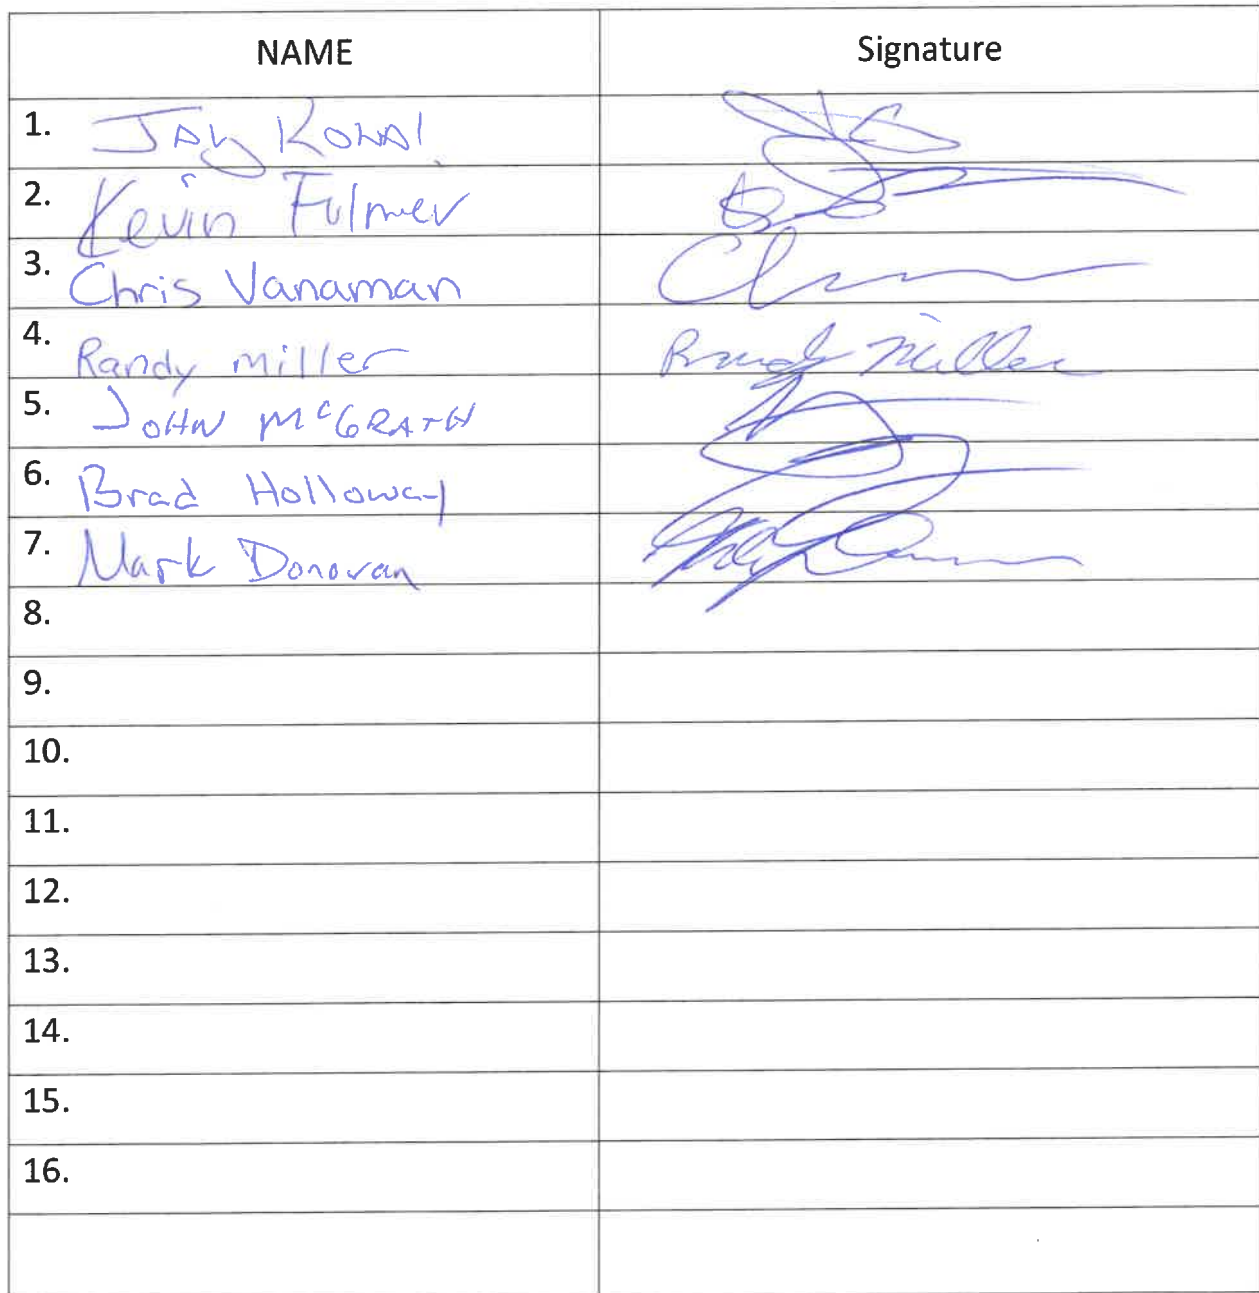 NAME Signature
1. JAY KOWAL
2. Kevin Fulmer
3. Chris Vanaman
4. Randy Miller Randy Miller
5. JOHN McGRATH
6. Brad Holloway
7. Mark Donovan
8.
9.
10.
11.
12.
13.
14.
15.
16.